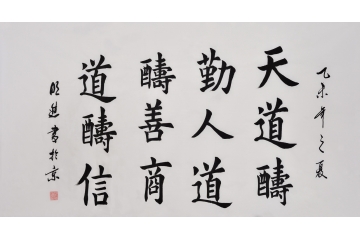 乙未年之夏
天道酬
勤人道
酬善商
道酬信
明进书于京